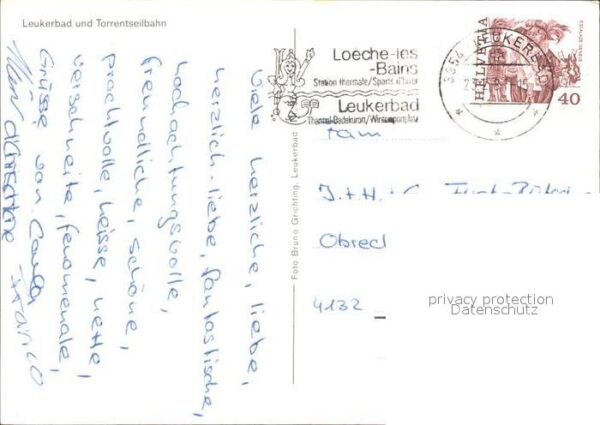 Leukerbad und Torrentseilbahn
Viele herzliche, liebe,
herzlich-liebe, fantastische,
hochachtungsvolle,
freundliche, schöne,
prachtvolle, heisse, nette,
verschneite, fenomenale,
Grüsse von Carla
Franco
Loèche-les
-Bains
Station thermale/Sports d'hiver
Leukerbad
Thermal-Badekurort/Wintersportplatz
3954 LEUKERBAD
HELVETIA
40
Foto Bruno Grichting, Leukerbad
Fam
J.+H.
Obrecl
4132
privacy protection
Datenschutz